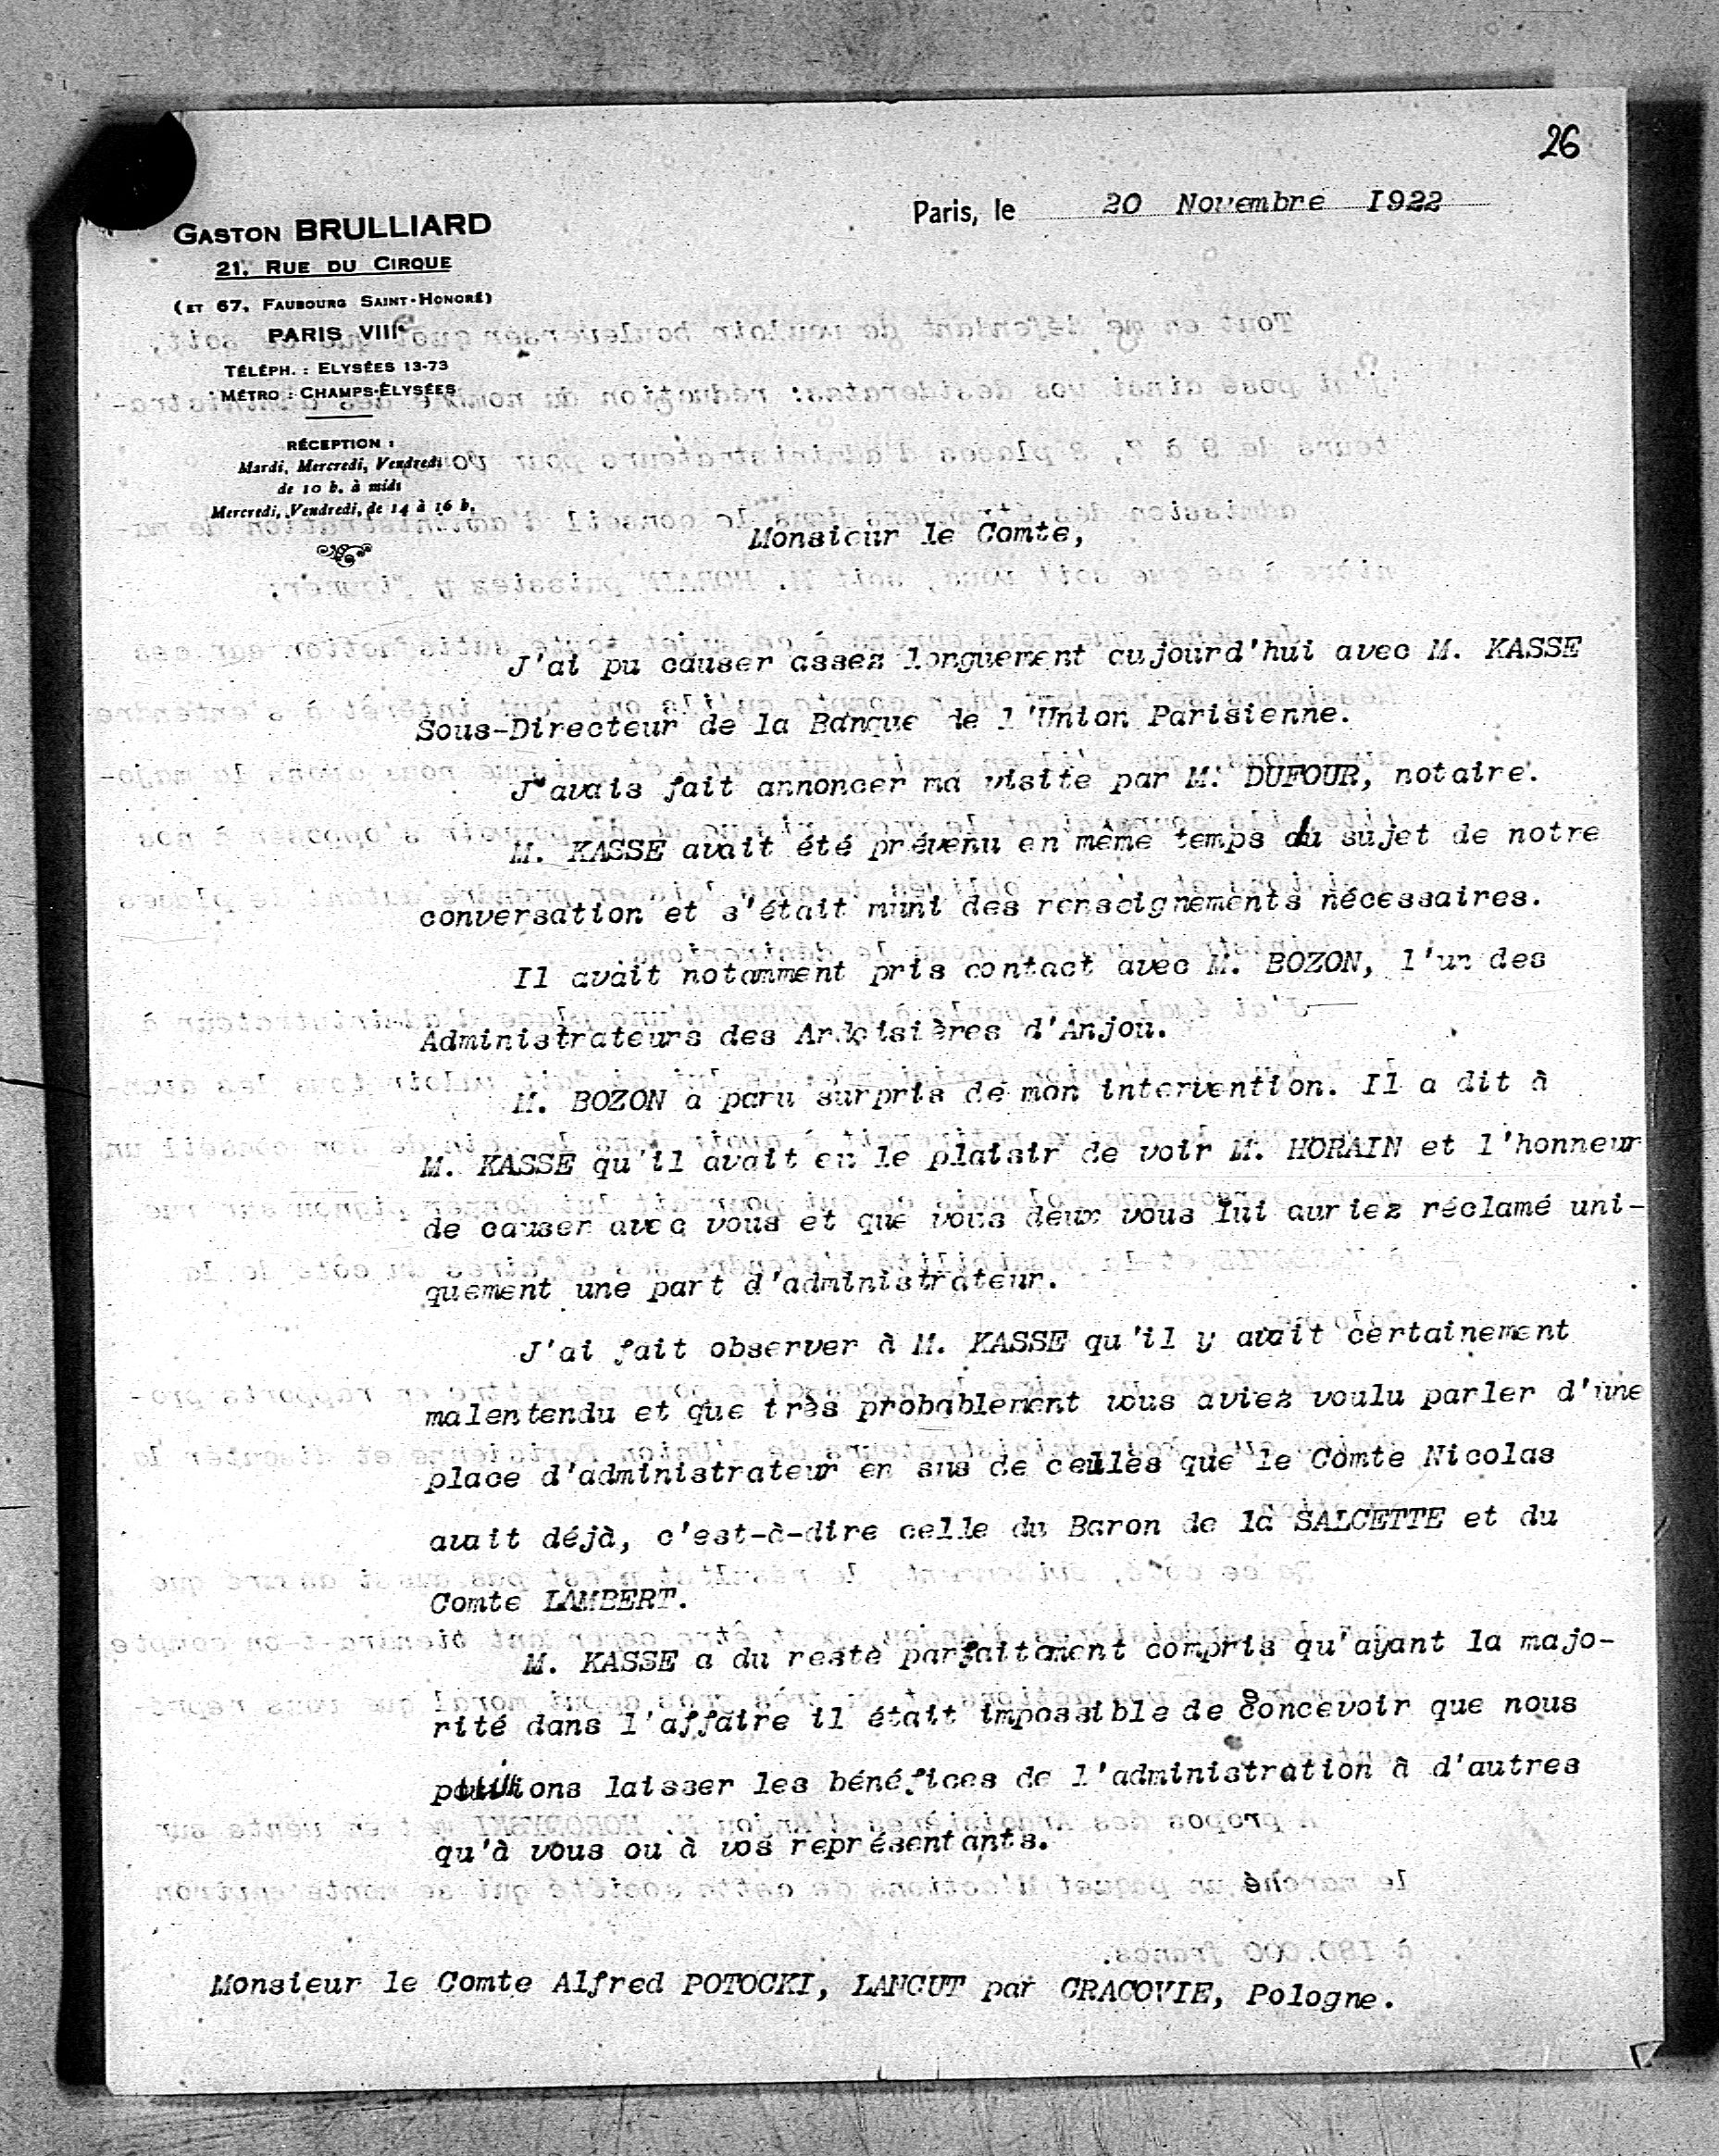 26
Paris, le 20 Novembre 1922
GASTON BRULLIARD
21, RUE DU CIRQUE
(ET 67, FAUBOURG SAINT-HONORÉ)
PARIS VIIIe
TÉLÉPH. : ELYSÉES 13-73
MÉTRO : CHAMPS-ÉLYSÉES
RÉCEPTION :
Mardi, Mercredi, Vendredi
de 10 h. à midi
Mercredi, Vendredi, de 14 à 16 h.
Monsieur le Comte,
J'ai pu causer assez longuement aujourd'hui avec M. KASSE
Sous-Directeur de la Banque de l'Union Parisienne.
J'avais fait annoncer ma visite par M. DUFOUR, notaire.
M. KASSE avait été prévenu en même temps du sujet de notre
conversation et s'était muni des renseignements nécessaires.
Il avait notamment pris contact avec M. BOZON, l'un des
Administrateurs des Ardoisières d'Anjou.
M. BOZON a paru surpris de mon intervention. Il a dit à
M. KASSE qu'il avait eu le plaisir de voir M. HORAIN et l'honneur
de causer avec vous et que vous deux vous lui auriez réclamé uni-
quement une part d'administrateur.
J'ai fait observer à M. KASSE qu'il y avait certainement
malentendu et que très probablement vous aviez voulu parler d'une
place d'administrateur en sus de celles que le Comte Nicolas
avait déjà, c'est-à-dire celle du Baron de la SALCETTE et du
Comte LAMBERT.
M. KASSE a du reste parfaitement compris qu'ayant la majo-
rité dans l'affaire il était impossible de concevoir que nous
puissions laisser les bénéfices de l'administration à d'autres
qu'à vous ou à vos représentants.
Monsieur le Comte Alfred POTOCKI, LANCUT par CRACOVIE, Pologne.